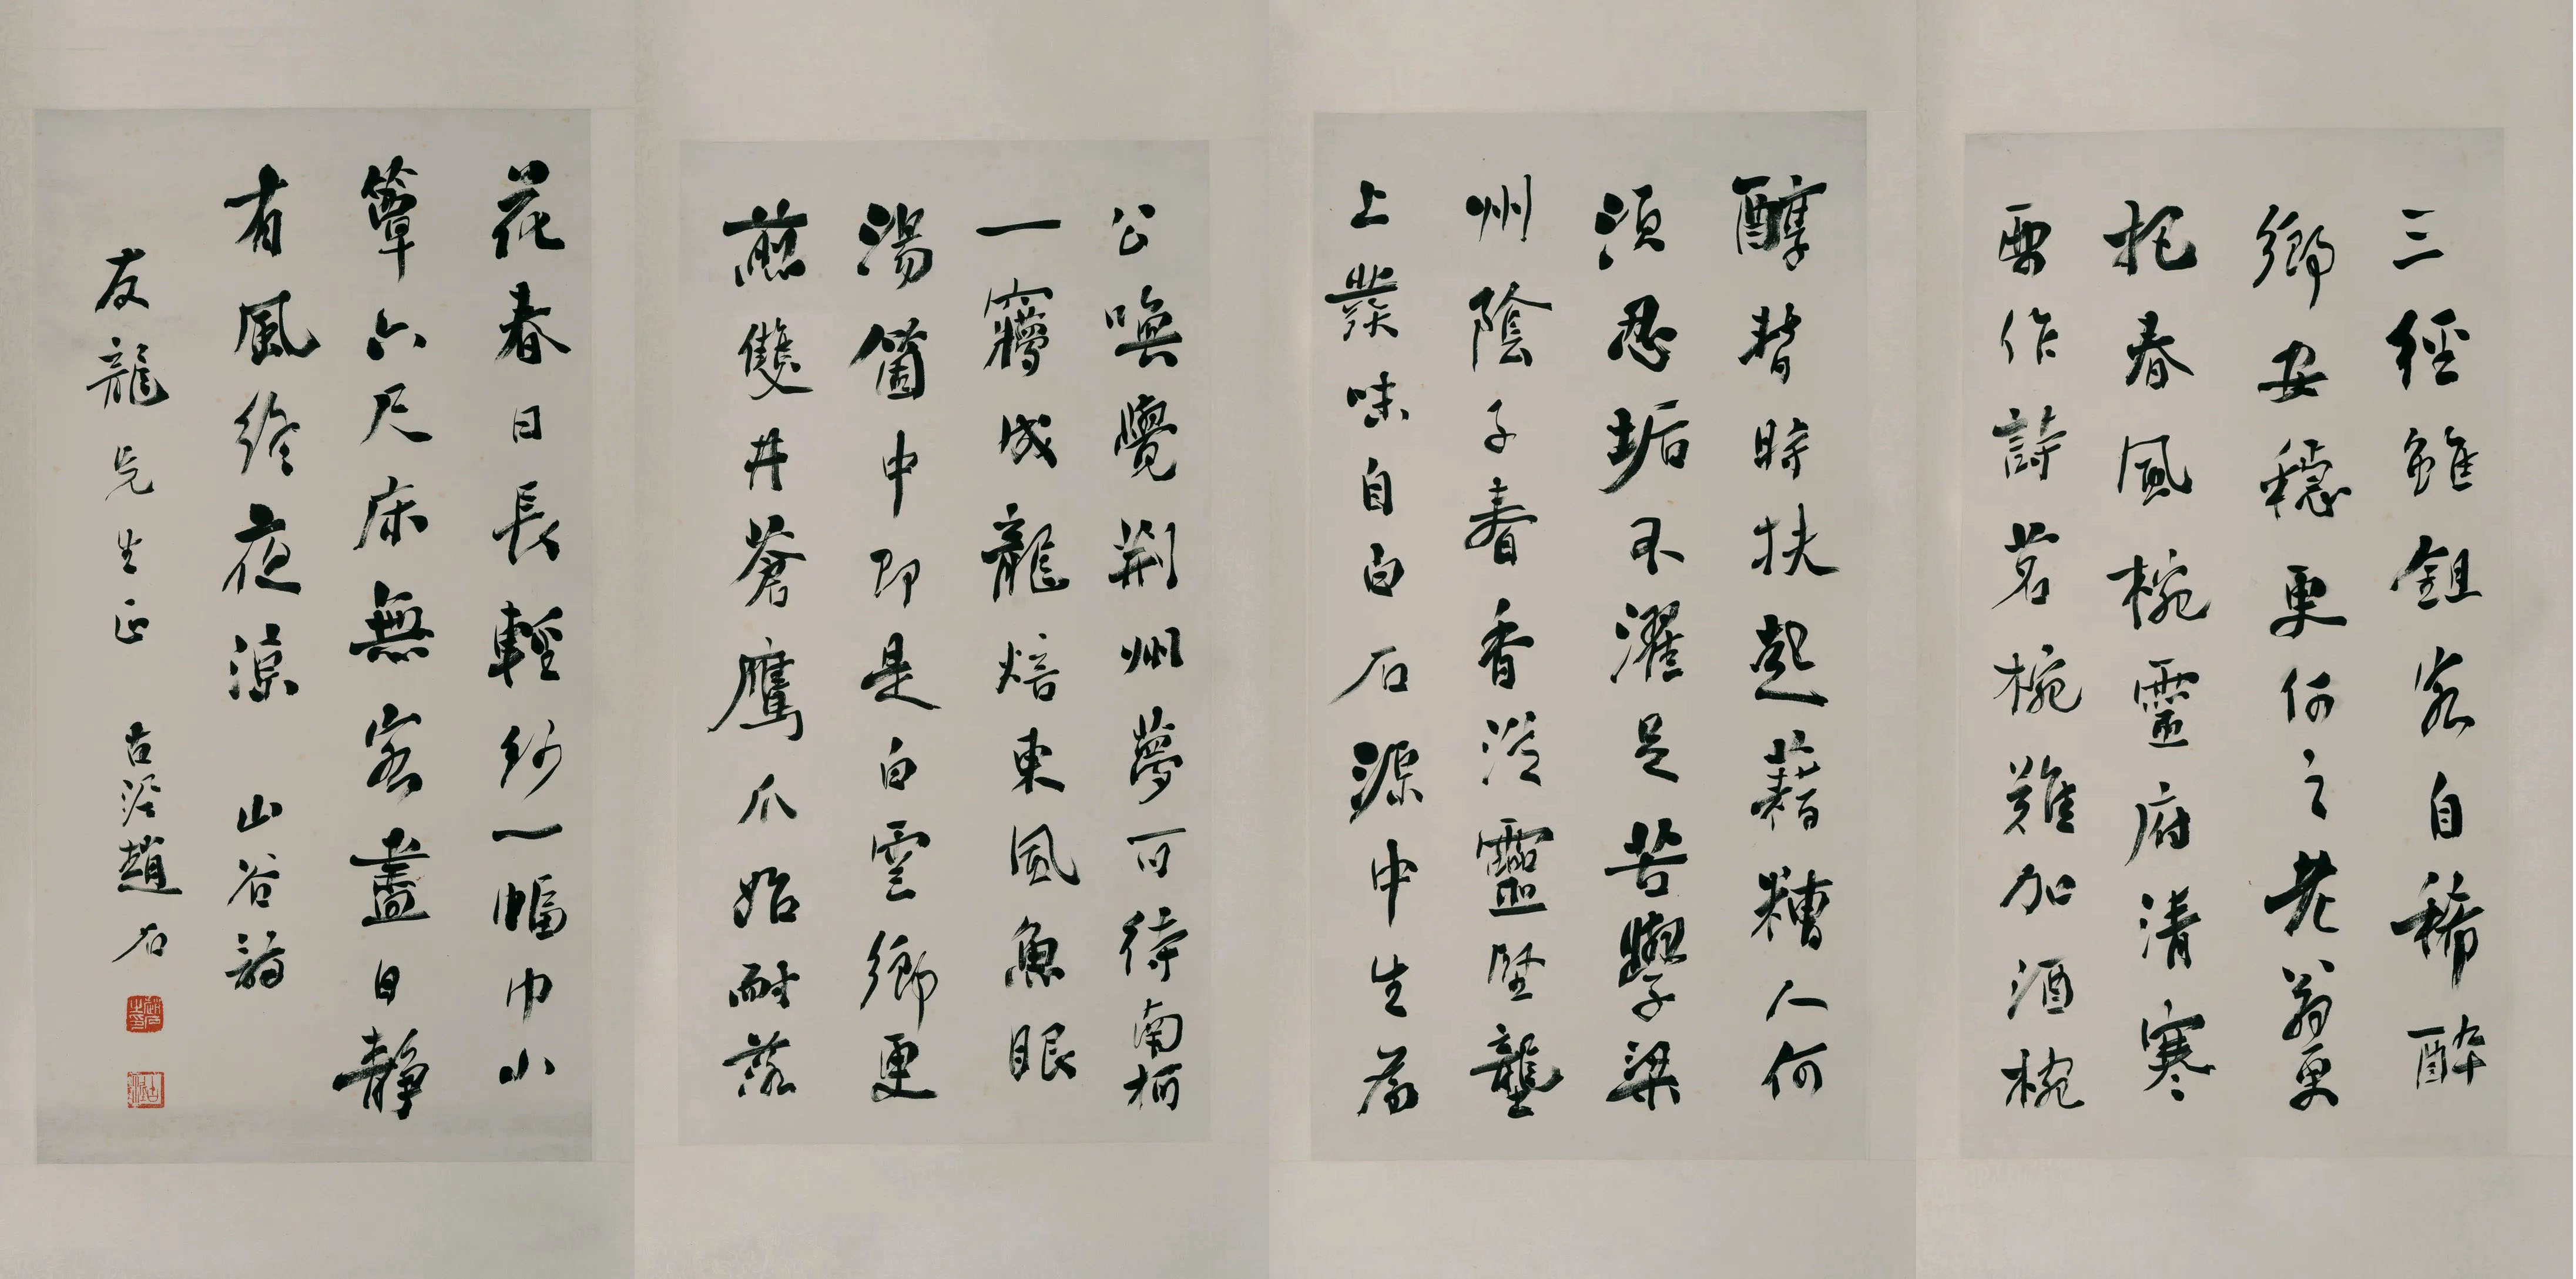 三徑雖鉏客自稀醉
鄉安穩更何之老翁更
把春風椀靈府清寒
要作詩茗椀難加酒椀
醇暫時扶起藉糟人何
須忍垢不濯足苦學梁
州陰子春香從靈堅壟
上發味自白石源中生為
公喚覺荊州夢可待南柯
一㝱成龍焙東風魚眼
湯箇中即是白雲鄉更
煎雙井蒼鷹爪始耐落
花春日長輕紗一幅巾小
簟六尺床無客盡日靜
有風終夜涼 山谷詩
友龍先生正 古泥趙石